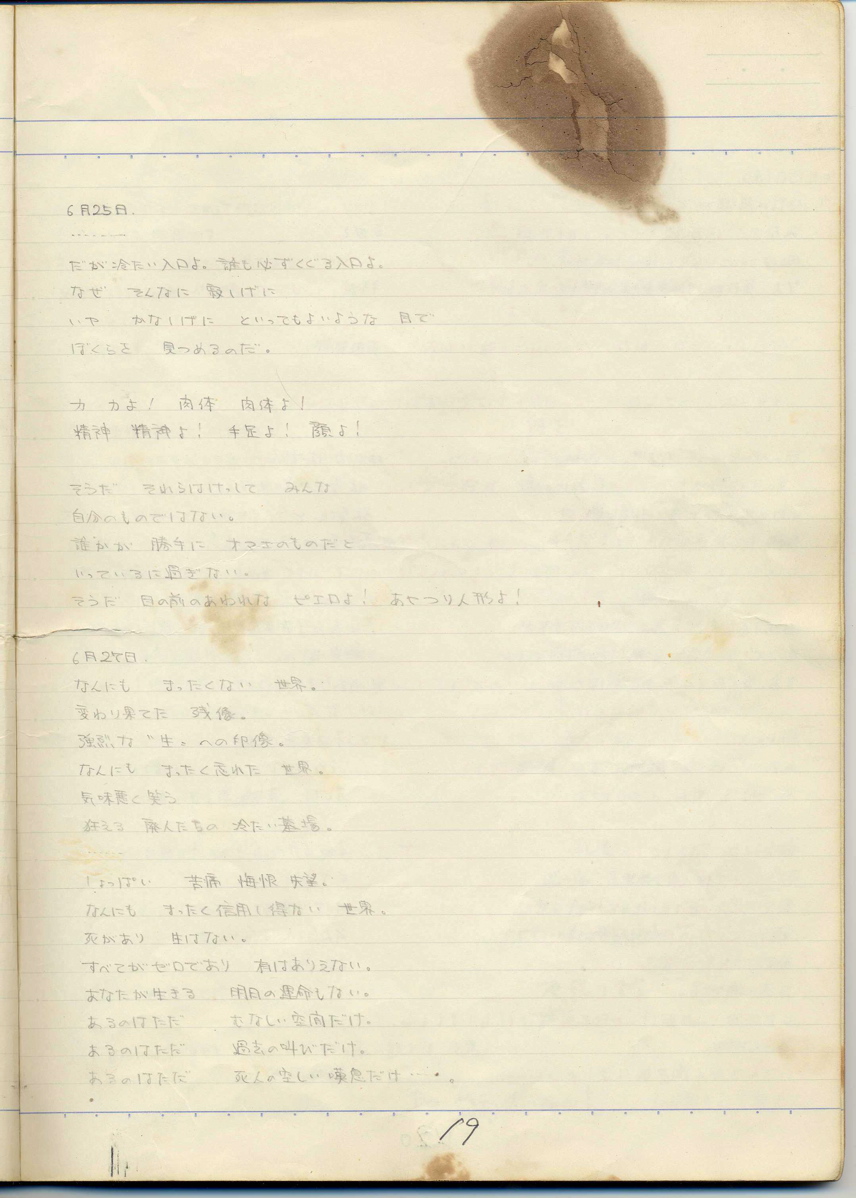 6月25日.
........
だが冷たい入口よ。誰も必ずくぐる入口よ。
なぜ そんなに 寂しげに
いや かなしげに といってもよいような 目で
ぼくらを 見つめるのだ。
力 力よ! 肉体 肉体よ!
精神 精神よ! 手足よ! 顔よ!
そうだ それらはけっして みんな
自分のものではない。
誰かが 勝手に オマエのものだと
いっているに過ぎない.
そうだ 目の前のあわれな ピエロよ! あやつり人形よ!
6月27日.
なんにも まったくない 世界。
変わり果てた 残像。
強烈な〝生〟への印像。
なんにも まったく忘れた 世界。
気味悪く笑う
狂える 廃人たちの 冷たい墓場。
........
しょっぱい 苦痛 悔恨 失望。
なんにも まったく信用し得ない 世界。
死があり 生はない。
すべてがゼロであり 有はありえない。
あなたが生きる 明日の運命もない。
あるのはただ むなしい空間だけ。
あるのはただ 過去の叫びだけ。
あるのはただ 死人の空しい嘆息だけ…・。
19